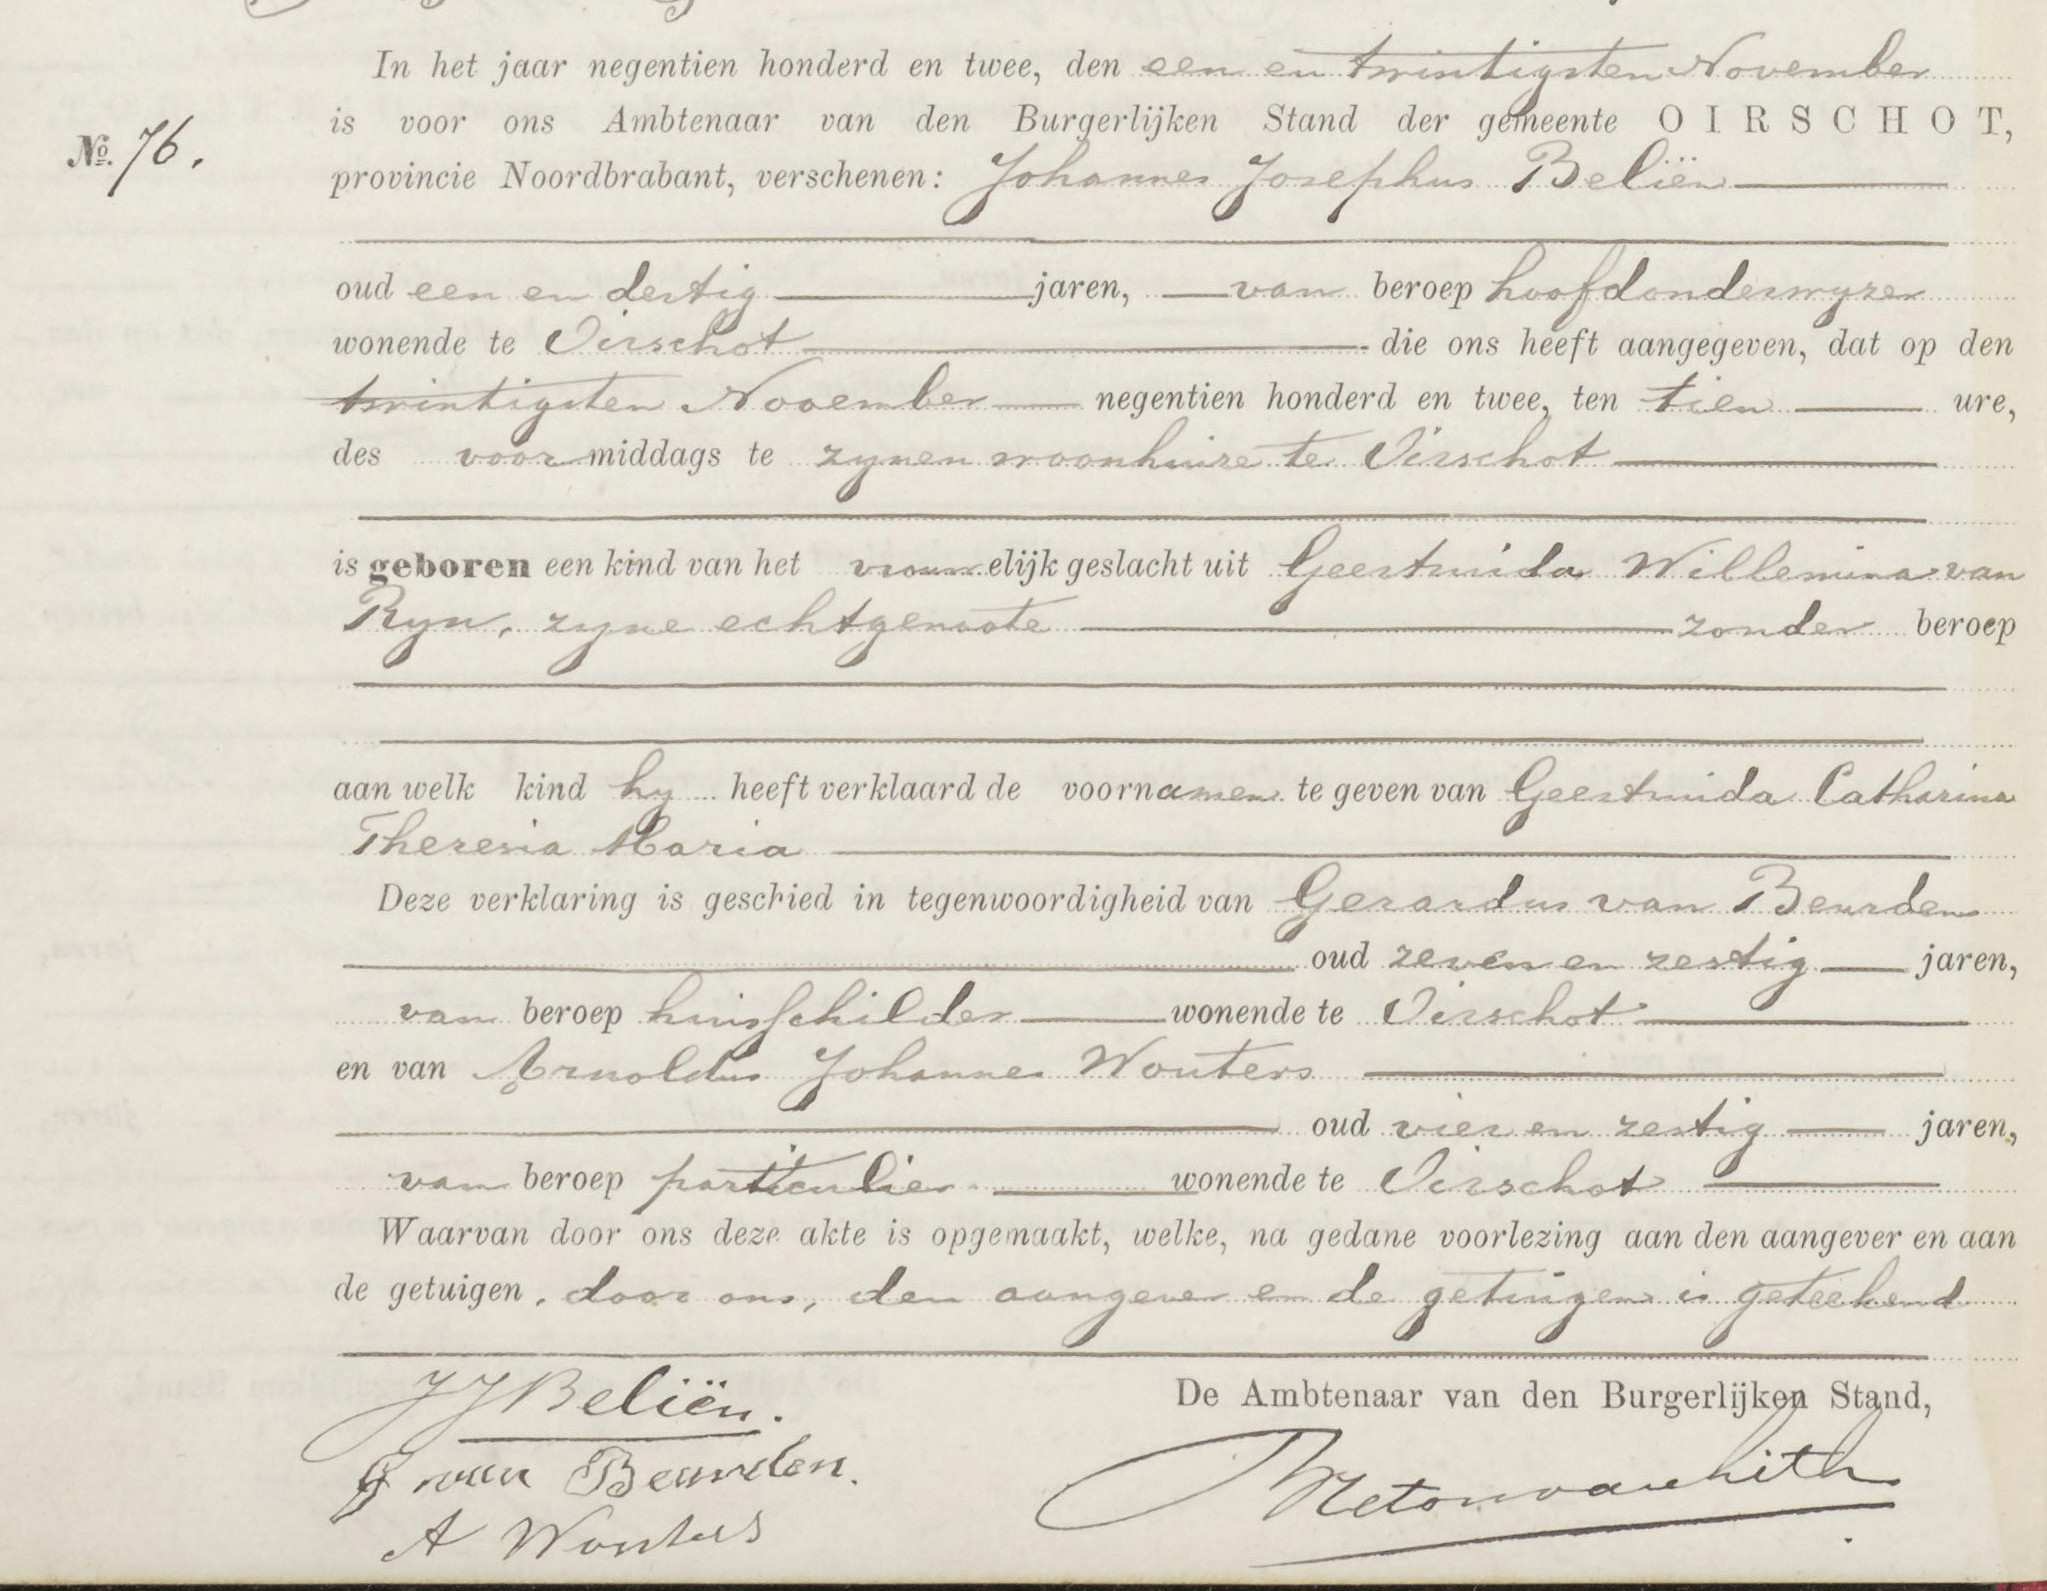 In het jaar negentien honderd en twee, den een en twintigsten November
is voor ons Ambtenaar van den Burgerlijken Stand der gemeente OIRSCHOT,
No. 76.
provincie Noordbrabant, verschenen: Johannes Josephus Beliën
oud een en dertig jaren, van beroep hoofdonderwyzer
wonende te Oirschot die ons heeft aangegeven, dat op den
twintigsten November negentien honderd en twee, ten tien ure,
des voormiddags te zynen woonhuize te Oirschot
is geboren een kind van het vrouwelijk geslacht uit Geertruida Willemina van
Ryn, zyne echtgenoote zonder beroep
aan welk kind hy heeft verklaard de voornamen te geven van Geertruida Catharina
Theresia Maria
Deze verklaring is geschied in tegenwoordigheid van Gerardus van Beurden
oud zeven en zestig jaren,
van beroep huisschilder wonende te Oirschot
en van Arnoldus Johannes Wouters
oud vier en zestig jaren,
van beroep particulier wonende te Oirschot
Waarvan door ons deze akte is opgemaakt, welke, na gedane voorlezing aan den aangever en aan
de getuigen, door ons, den aangever en de getuigen is geteekend
JJ Beliën.
De Ambtenaar van den Burgerlijken Stand,
G van Beurden.
A Wouters